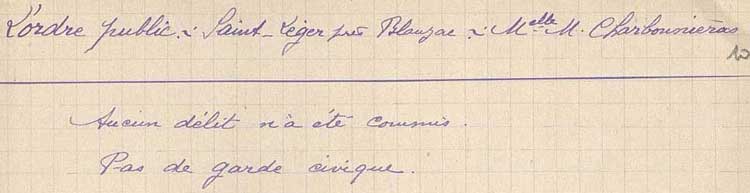 L'ordre public. ~ Saint-Léger près Blanzac ~ Melle M. Charbonnieras
10
Aucun délit n'a été commis.
Pas de garde civique.